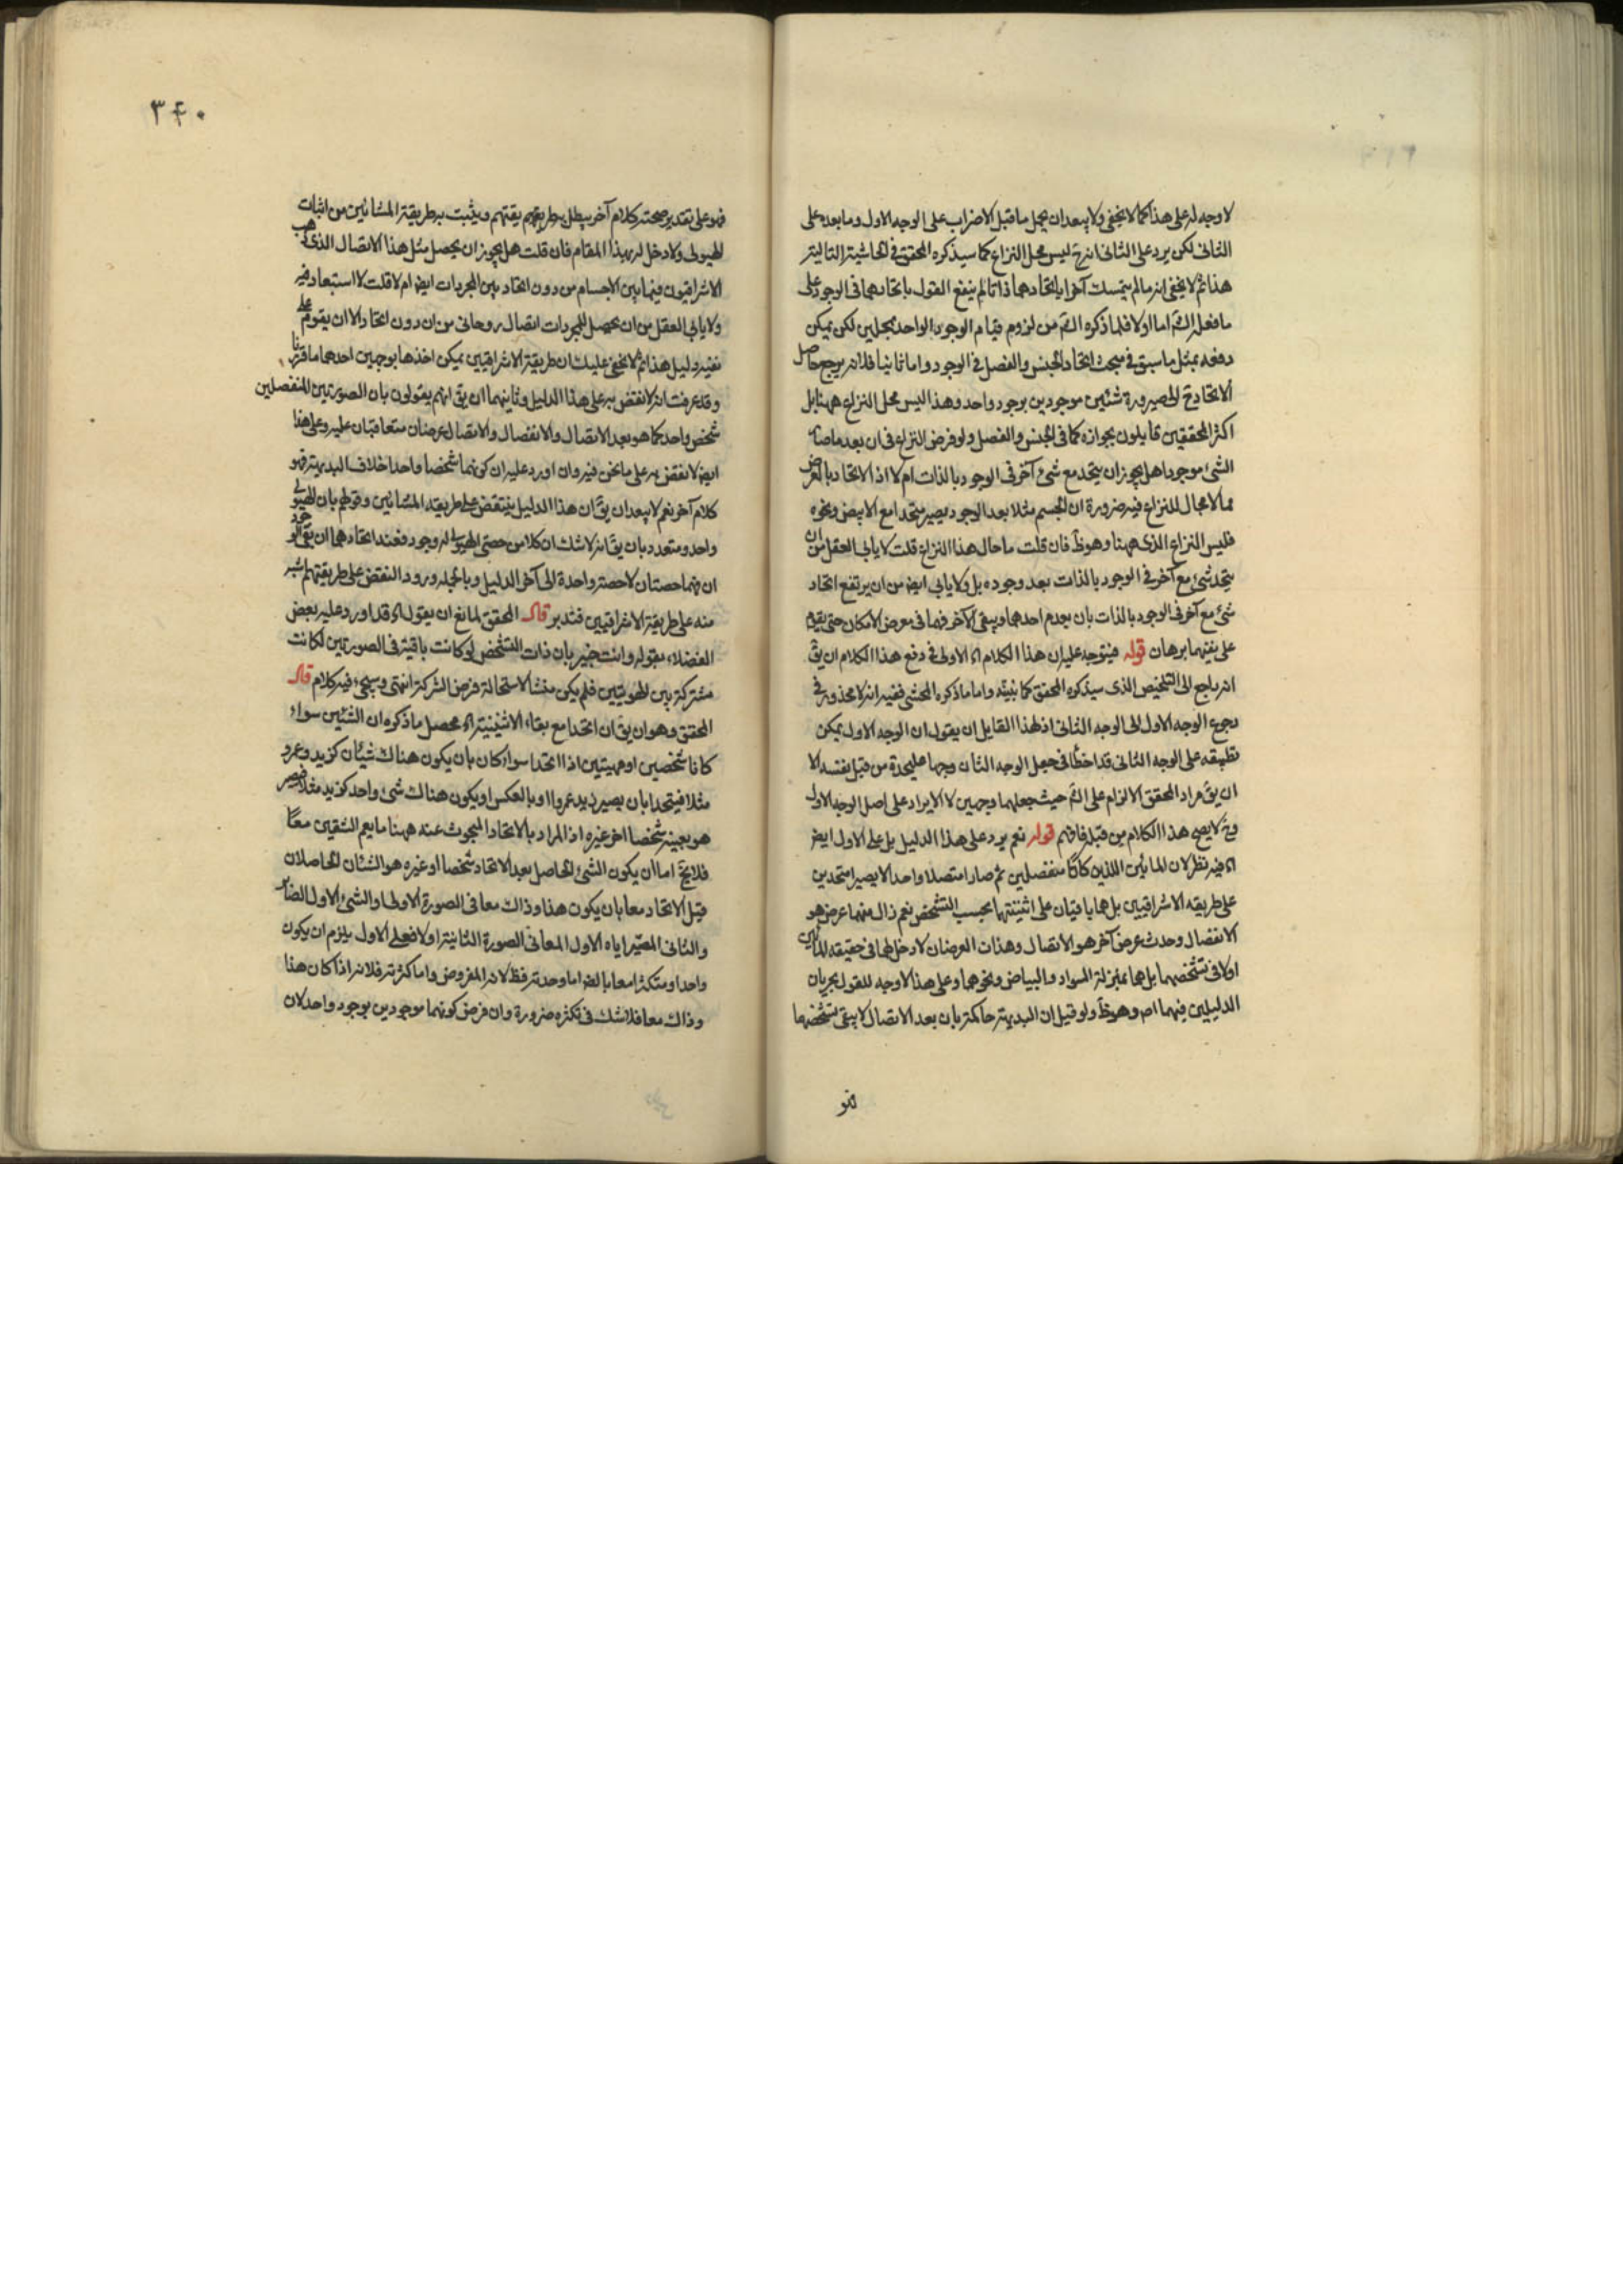 لا وجه له على هذا كما لا يخفى ولا يبعد ان يحمل ما قبل الاضراب على الوجه الاول وما بعده على
الثانى لكن يرد على الثانى انه ح ليس محل النزاع كما سيذكره المحقق فى الحاشية التالية
هذا ثم لا يخفى انه ما لم يتمسك آخرا باتحادهما ذاتا لم ينفع القول باتحادهما فى الوجود على
ما فعله الشم اما اولا فلما ذكره الشم من لزوم قيام الوجود الواحد بمحلين لكن يمكن
دفعه بمثل ما سبق فى مبحث اتحاد الجنس والفصل فى الوجود واما ثانيا فلانه يرجع حاصل
الاتحاد ح الى صيرورة شئين موجودين بوجود واحد وهذا ليس محل النزاع ههنا بل
اكثر المحققين قايلون بجوازه كما فى الجنس والفصل ولو فرض النزاع فى ان بعد ما صار
الشئ موجودا هل يجوز ان يتحد مع شئ آخر فى الوجود بالذات ام لا اذ الاتحاد بالعرض
مما لا مجال للنزاع فيه ضرورة ان الجسم مثلا بعد الوجود يصير متحدا مع الابيض ونحوه
فليس النزاع الذى ههنا وهو ظ فان قلت ما حال هذا النزاع قلت لا يابى العقل من ان
يتحد شئ مع آخر فى الوجود بالذات بعد وجوده بل ولا يابى ايض من ان يرتفع اتحاد
شئ مع آخر فى الوجود بالذات بان يعدم احدهما ويبقى الآخر فهما فى معرض الامكان حتى يقوم
على نفيهما برهان قوله فيتوجه عليه ان هذا الكلام اه الاولى فى دفع هذا الكلام ان يق
انه راجع الى التلخيص الذى سيذكره المحقق كما نبينه واما ما ذكره المحشى ففيه انه لا محذور فى
رجوع الوجه الاول الى الوجه الثانى اذ لهذا القايل ان يقول ان الوجه الاول يمكن
تطبيقه على الوجه الثانى قد اخطأ فى جعل الوجه الثان وجها عليحدة من قبل نفسه الا
ان يق مراد المحقق الالزام على الشم حيث جعلهما وجهين لا الايراد على اصل الوجه الاول
وح لا يصح هذا الكلام من قبله فافهم قوله نعم يرد على هذا الدليل بل على الاول ايض
اه فيه نظر لان المائين اللذين كانا منفصلين ثم صارا متصلا واحدا لا يصيرا متحدين
على طريقه الاشراقيين بل هما باقيان على اثنينتهما بحسب التشخص نعم زال منهما عرض هو
الانفصال وحدث عرض آخر هو الاتصال وهذان العرضان لا دخل لهما فى حقيقه المائين
اولا فى تشخصهما بل هما بمنزلة السواد والبياض ونحوهما وعلى هذا لا وجه للقول بجريان
الدليلين فيهما اص وهو ظ ولو قيل ان البديهة حاكمة بان بعد الاتصال لا يبقى تشخصهما
فهو
٣٤٠
فهو على تقدير صحته كلام آخر يبطل به طريقهم يقتهم ويثبت به طريقة المشائين من اثبات
الهيولى ولا دخل له بهذا المقام فان قلت هل يجوز ان يحصل مثل هذا الاتصال الذى ذهب
الاشراقيون فيما بين الاجسام من دون اتحاد بين المجردات ايض ام لا قلت لا استبعاد فيه
ولا يابى العقل من ان يحصل للمجردات اتصال روحانى من ان دون اتحاد الا ان يقوم على
نفيه دليل هذا ثم لا يخفى عليك ان طريقة الاشراقيين يمكن اخذها بوجهين احدهما ما قررنا
وقد عرفت انه لا نقض به على هذا الدليل وثانيهما ان يق انهم يقولون بان الصورتين المنفصلين
شخص واحد كما هو بعد الاتصال والانفصال والاتصال عرضان متعاقبان عليه وعلى هذا
ايض لا نقض به على ما نحن فيه وان اورد عليه ان كونهما شخصا واحدا خلاف البديهة فهو
كلام آخر نعم لا يبعد ان يق ان هذا الدليل ينتقض على طريقة المشائين وقولهم بان الهيولى
واحد ومتعدد بان يق انه لا شك ان كلا من حصتى الهيولى له وجود فعند اتحادهما ان بقى الوجود
ان فهما حصتان لا حصة واحدة الى آخر الدليل وبالجملة ورود النقض على طريقتهم اشبه
منه على طريقة الاشراقيين فتدبر قال المحقق لمانع ان يقول اه قد اورد عليه بعض
الفضلاء بقوله وانت خبير بان ذات التشخص لو كانت باقية فى الصورتين لكانت
مشتركة بين الهويتين فلم يكن منشا لاستحالة فرض الشركة انتهى وسيجئ فيه كلام قال
المحقق وهو ان يق ان اتحدا مع بقاء الاثنينية اه محصل ما ذكره ان الشئين سواء
كانا شخصين او مهيتين اذا اتحدا سواء كان بان يكون هناك شيئان كزيد وعمرو
مثلا فيتحدا بان يصير زيد عمروا او بالعكس او يكون هناك شئ واحد كزيد مثلا فيصير
هو بعينه شخصا اخر غيره اذ المراد بالاتحاد المبحوث عنه ههنا ما يعم الشقين معا
فلا يخ اما ان يكون الشئ الحاصل بعد الاتحاد شخصا او غيره هو الشئان الحاصلان
قبل الاتحاد معا بان يكون هذا وذاك معا فى الصورة الاولى او الشئ الاول الصاير
والثانى المصير اياه الاول المعا فى الصورة الثانية او لا فعلى الاول يلزم ان يكون
واحدا ومتكثرا معا بالضر اما وحدته فظ لانه المفروض واما كثرته فلانه اذا كان هذا
وذاك معا فلا شك فى تكثره ضرورة وان فرض كونهما موجودين بوجود واحد لان